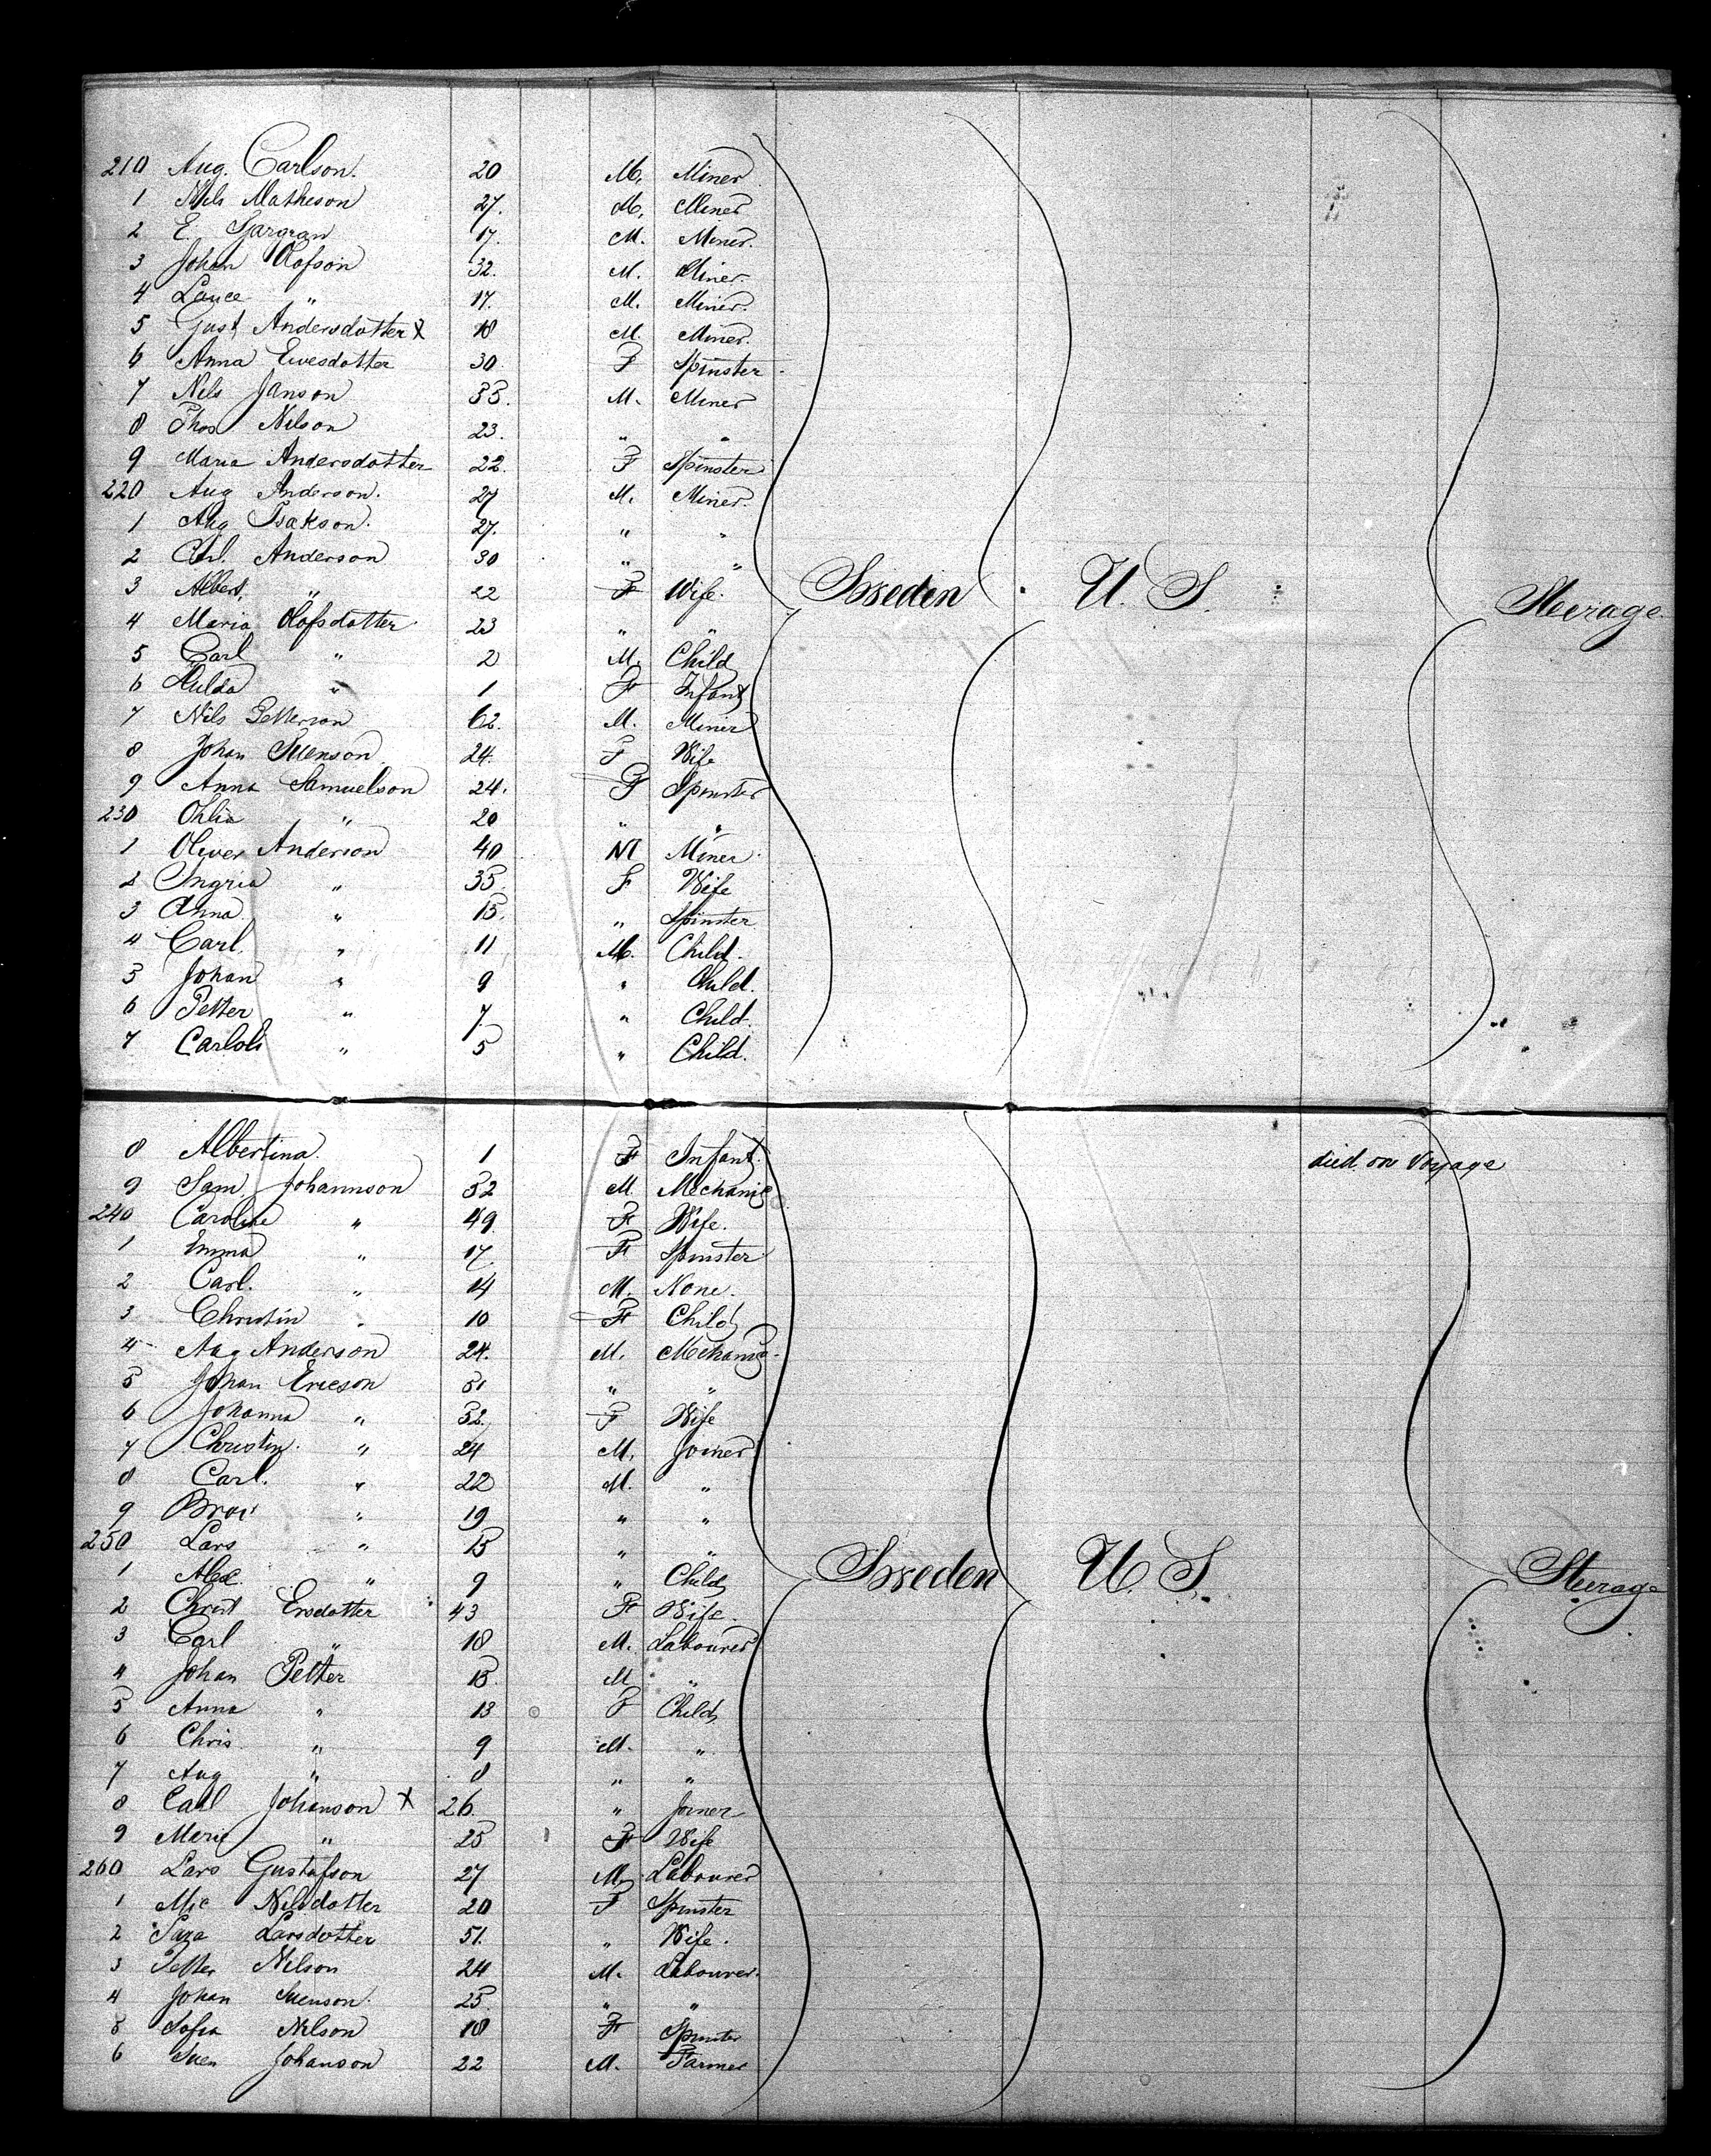 210 Aug. Carlson. 20 M. Miner
1 Nils Matheson 27. M. Miner
2 E. 17. M. Miner.
3 Johan Olofson 32. M. Miner.
4 Lance " 17. M. Miner.
5 Gust Andersdotter X 18 M. Miner.
6 Anna Evesdotter 30 F Spinster
7 Nils Janson 35. M. Miner
8 Thos Nilson 23. " "
9 Maria Andersdotter 22. F Spinster
220 Aug Anderson. 27 M. Miner.
1 Aug Isakson. 27. " "
2 Carl. Anderson 30 " "
3 Albert. " 22 F Wife. Sweden U. S. Steerage.
4 Maria Olofsdotter 23 " "
5 Carl " 2 M. Child
6 Hulda " 1 F Infant
7 Nils Petterson 62. M. Miner
8 Johan Svenson 24. F Wife
9 Anna Samuelson 24. F Spinster
230 " 20 " "
1 Oliver Anderson 40 M Miner.
2 Ingria " 35. F Wife
3 Anna. " 15. " Spinster
4 Carl. " 11 M. Child.
5 Johan " 9 " Child.
6 Petter " 7. " Child.
7 " 5 " Child.
8 Albertina. 1 F Infant. died on Voyage
9 Sam. Johannson 52 M. Mechanic
240 Caroline " 49. F Wife.
1 Emma " 17. F Spinster
2 Carl. " 14 M. None.
3 Christin " 10 F Child
4 Aug Anderson 24. M. Mechanic
5 Johan Ericson 51 " "
6 Johanna " 52. F Wife
7 Christin. " 24 M. Joiner
8 Carl. " 22 M. "
9 " 19 " "
250 Lars " 15 " " Sweden U. S. Steerage
1 Alex. " 9 " Child
2 Christ Ersdotter 43 F Wife.
3 Carl " 18 M. Labourer
4 Johan Petter 15. M "
5 Anna " 13 F Child
6 Chris. " 9 M. "
7 Aug " 8 " "
8 Carl Johanson X 26. " Joiner
9 Marie " 25 F Wife
260 Lars Gustafson 27 M. Labourer
1 Mia Nilsdotter 20 F Spinster
2 Sara Larsdotter 51. " Wife.
3 Petter Nilson 24 M. Labourer.
4 Johan Svenson. 25. " "
5 Sofia Nilson 18 F Spinster
6 Sven Johanson 22 M. Farmer